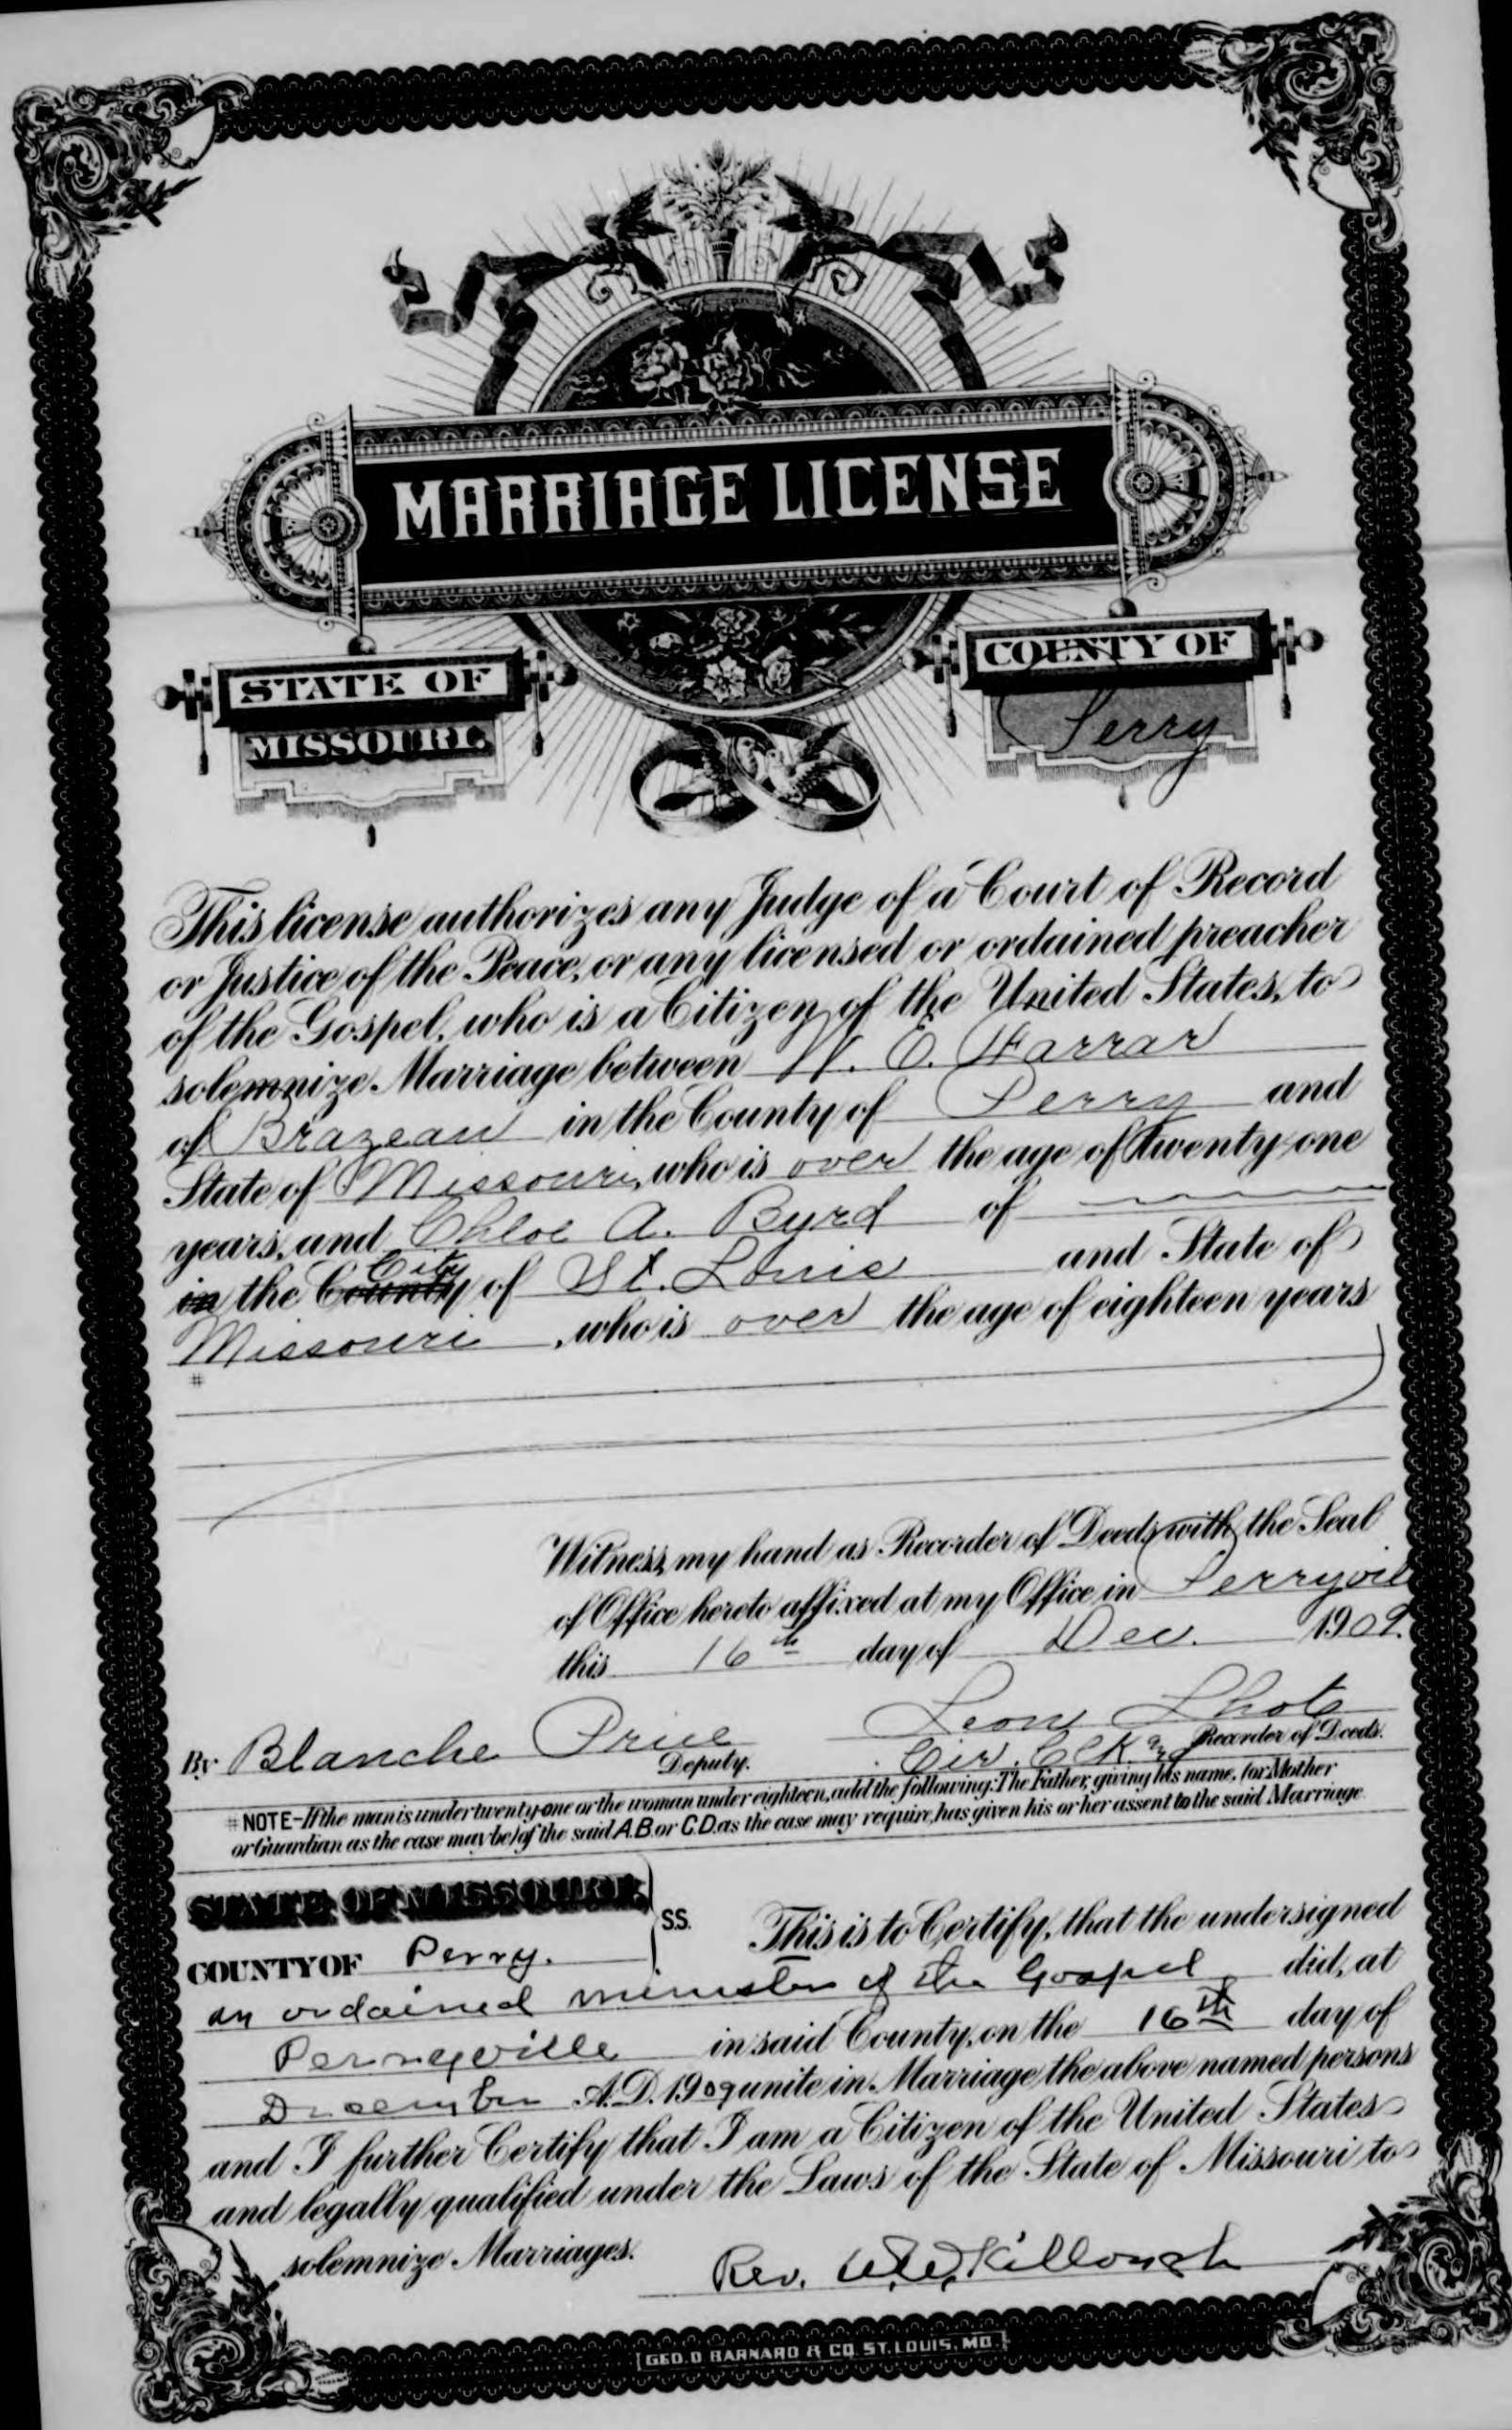 MARRIAGE LICENSE
STATE OF
MISSOURI.
COUNTY OF
Perry
This license authorizes any Judge of a Court of Record
or Justice of the Peace, or any licensed or ordained preacher
of the Gospel, who is a Citizen of the United States, to
solemnize Marriage between W. E. Farrar
of Brazeau in the County of Perry and
State of Missouri, who is over the age of twenty-one
years, and Chloe A. Byrd of
City
in the County of St. Louis and State of
Missouri, who is over the age of eighteen years
#
Witness my hand as Recorder of Deeds, with the Seal
of Office hereto affixed at my Office in Perryvil
this 16th day of Dec. 1909.
By Blanche Price Leon Lhote
Deputy. Cir. Clk and Recorder of Deeds.
# NOTE-If the man is under twenty-one or the woman under eighteen, add the following: The Father, giving his name, (or Mother
or Guardian as the case may be) of the said A.B. or C.D. as the case may require, has given his or her assent to the said Marriage.
STATE OF MISSOURI,
SS.
COUNTY OF Perry.
This is to Certify, that the undersigned
an ordained minister of the Gospel did, at
Perryville in said County, on the 16th day of
December A.D. 1909 unite in Marriage the above named persons
and I further Certify that I am a Citizen of the United States
and legally qualified under the Laws of the State of Missouri to
solemnize Marriages.
Rev. Killough
GEO. D BARNARD & CO. ST. LOUIS, MO.